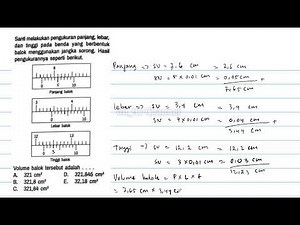 Santi melakukan pengukuran panjang, lebar,
dan tinggi pada benda yang berbentuk
balok menggunakan jangka sorong. Hasil
pengukurannya seperti berikut.
7 8
0 5 10
Panjang balok
3 4
0 5 10
Lebar balok
12 13
0 5 10
Tinggi balok
Volume balok tersebut adalah . . . .
A. 321 cm³ D. 321,845 cm³
B. 321,8 cm³ E. 32,18 cm³
C. 321,84 cm³
Panjang => SU = 7.6 cm = 7,6 cm
SN = 5 x 0.01 cm = 0.05 cm +
7.65 cm
Lebar => SU = 3,4 cm = 3,4 cm
SN = 4 x 0,01 cm = 0.04 cm +
3,44 cm
Tinggi => SU =
SN = 3 x 0.01 cm = 0.03 cm +
12.23 cm
Volume balok = P x L x t
= 7.65 cm x 3.44 cm